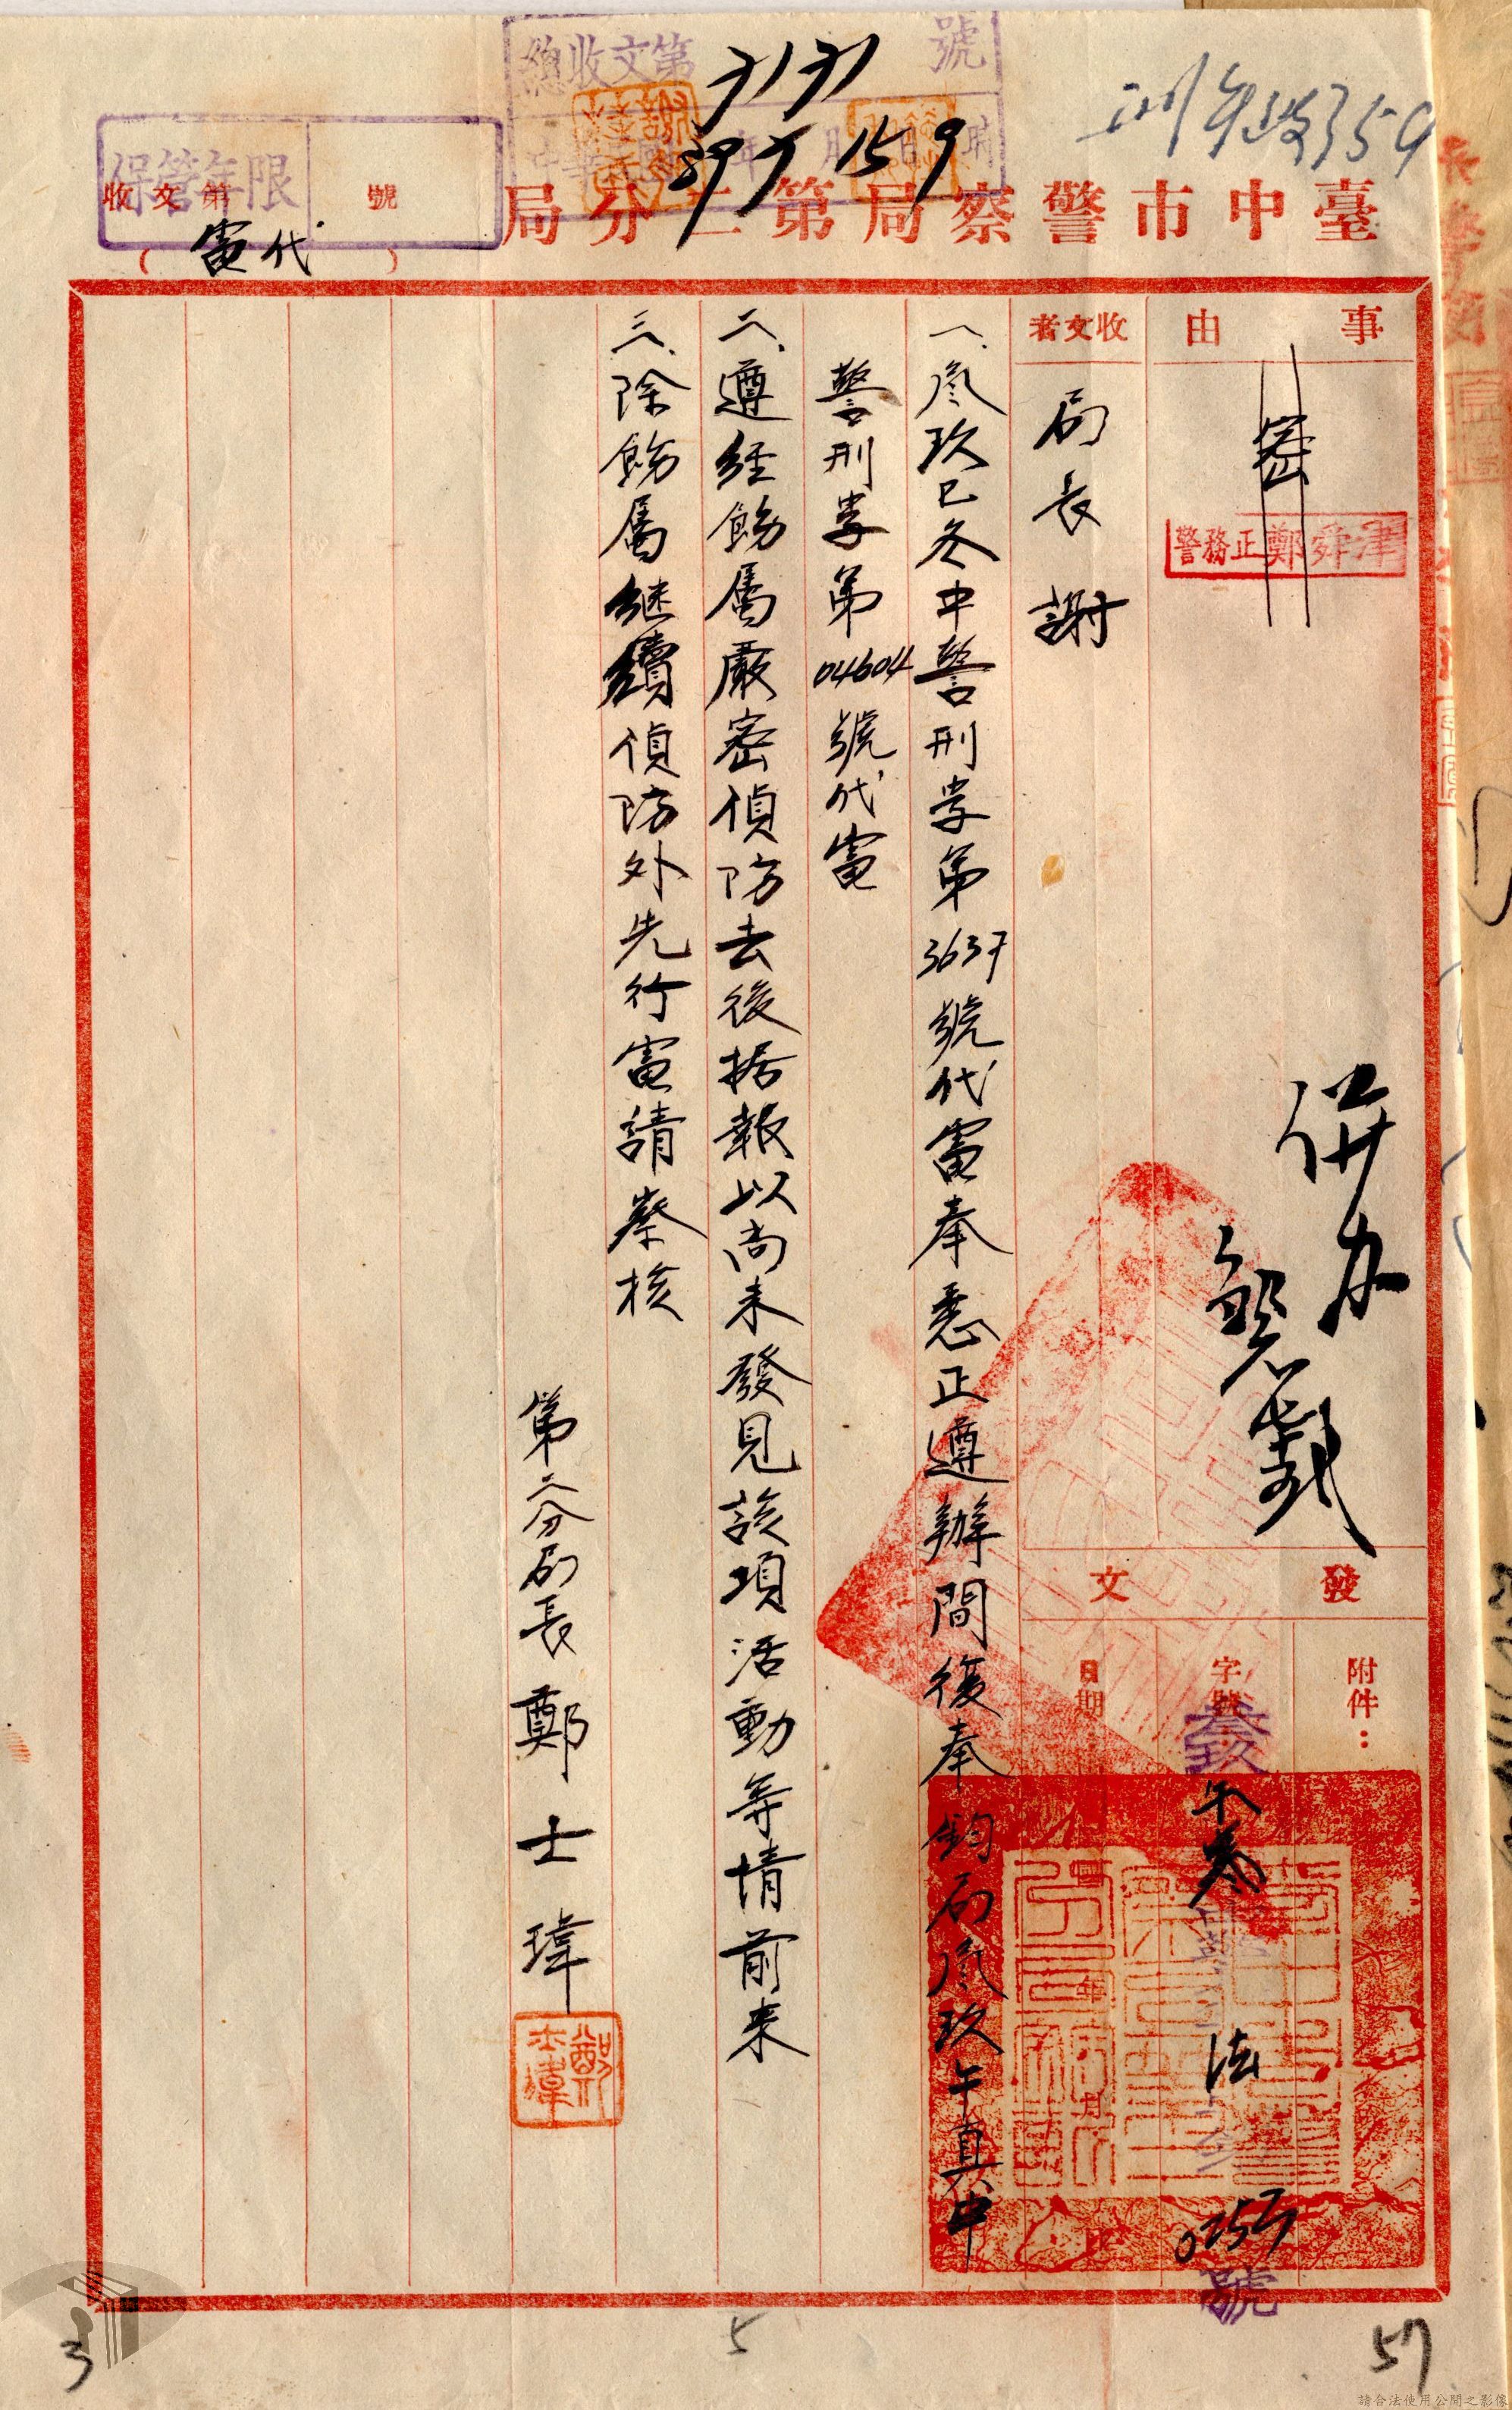 總收文第 號
臺中市警察局第二分局
保管年限
收文第 號
(代電)
事由
密
警務正鄭舜津
併办
收文者
局長謝
發文
附件：
字號
叁玖午 法 號
日期
一、叁玖巳冬中警刑孝第3637號代電奉悉正遵辦間復奉鈞局叁玖午真中
警刑孝第04604號代電
二、遵經飭屬嚴密偵防去後据報以尚未發見該項活動等情前来
三、除飭屬継續偵防外先行電請察核
第二分局長鄭士瑋
鄭士瑋
3
5
57
請合法使用公開之影像